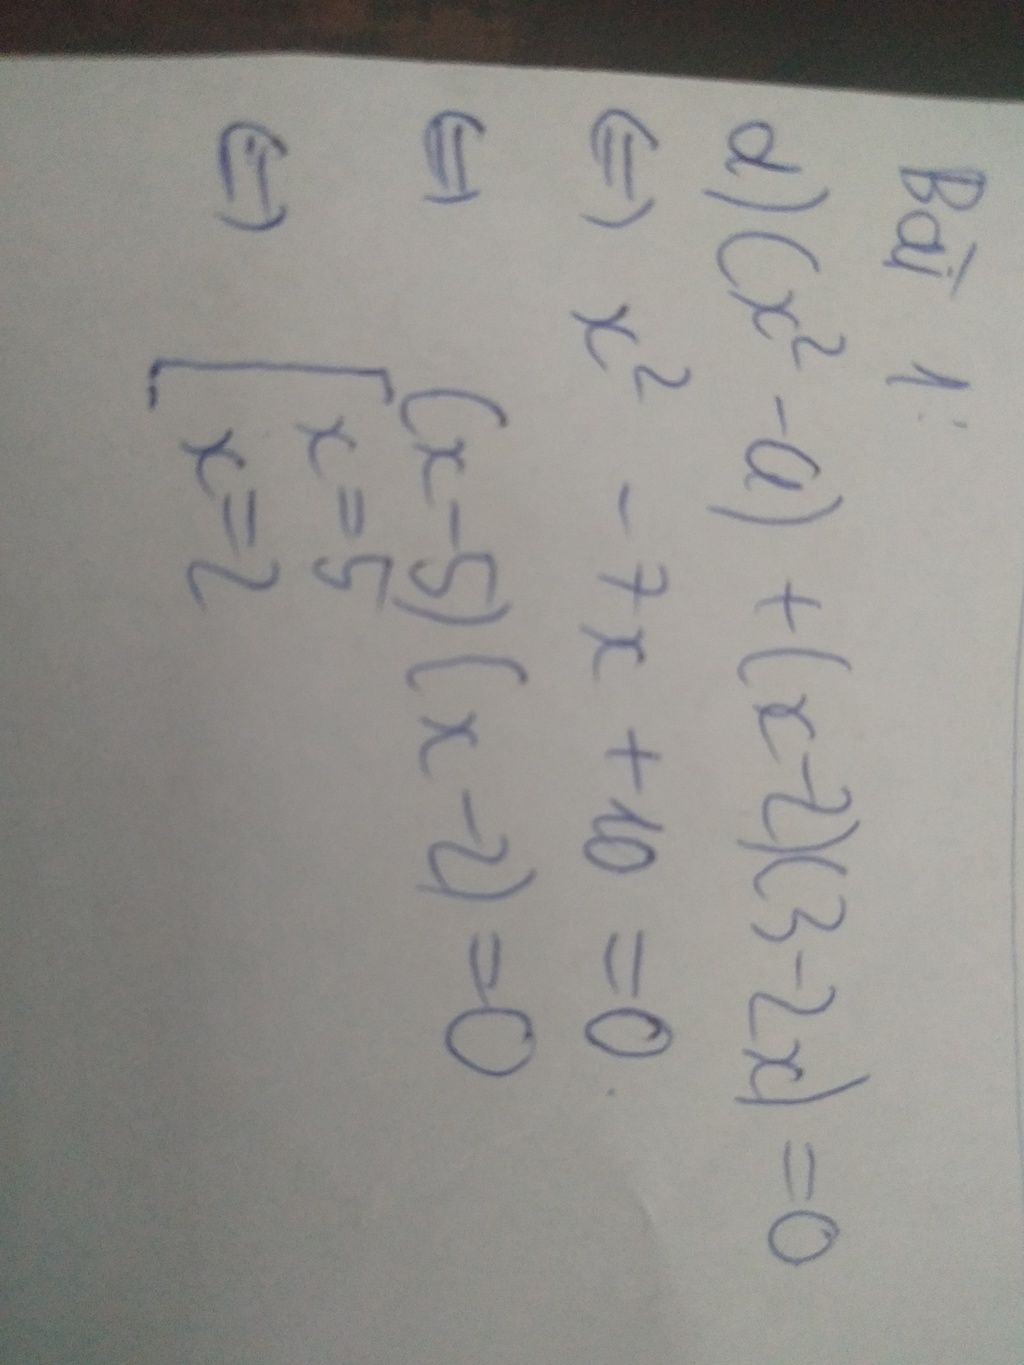 Bài 1:
d) (x² - 4) + (x - 2)(3 - 2x) = 0
⇔ x² - 7x + 10 = 0
⇔ (x - 5)(x - 2) = 0
⇔ [ x = 5
x = 2